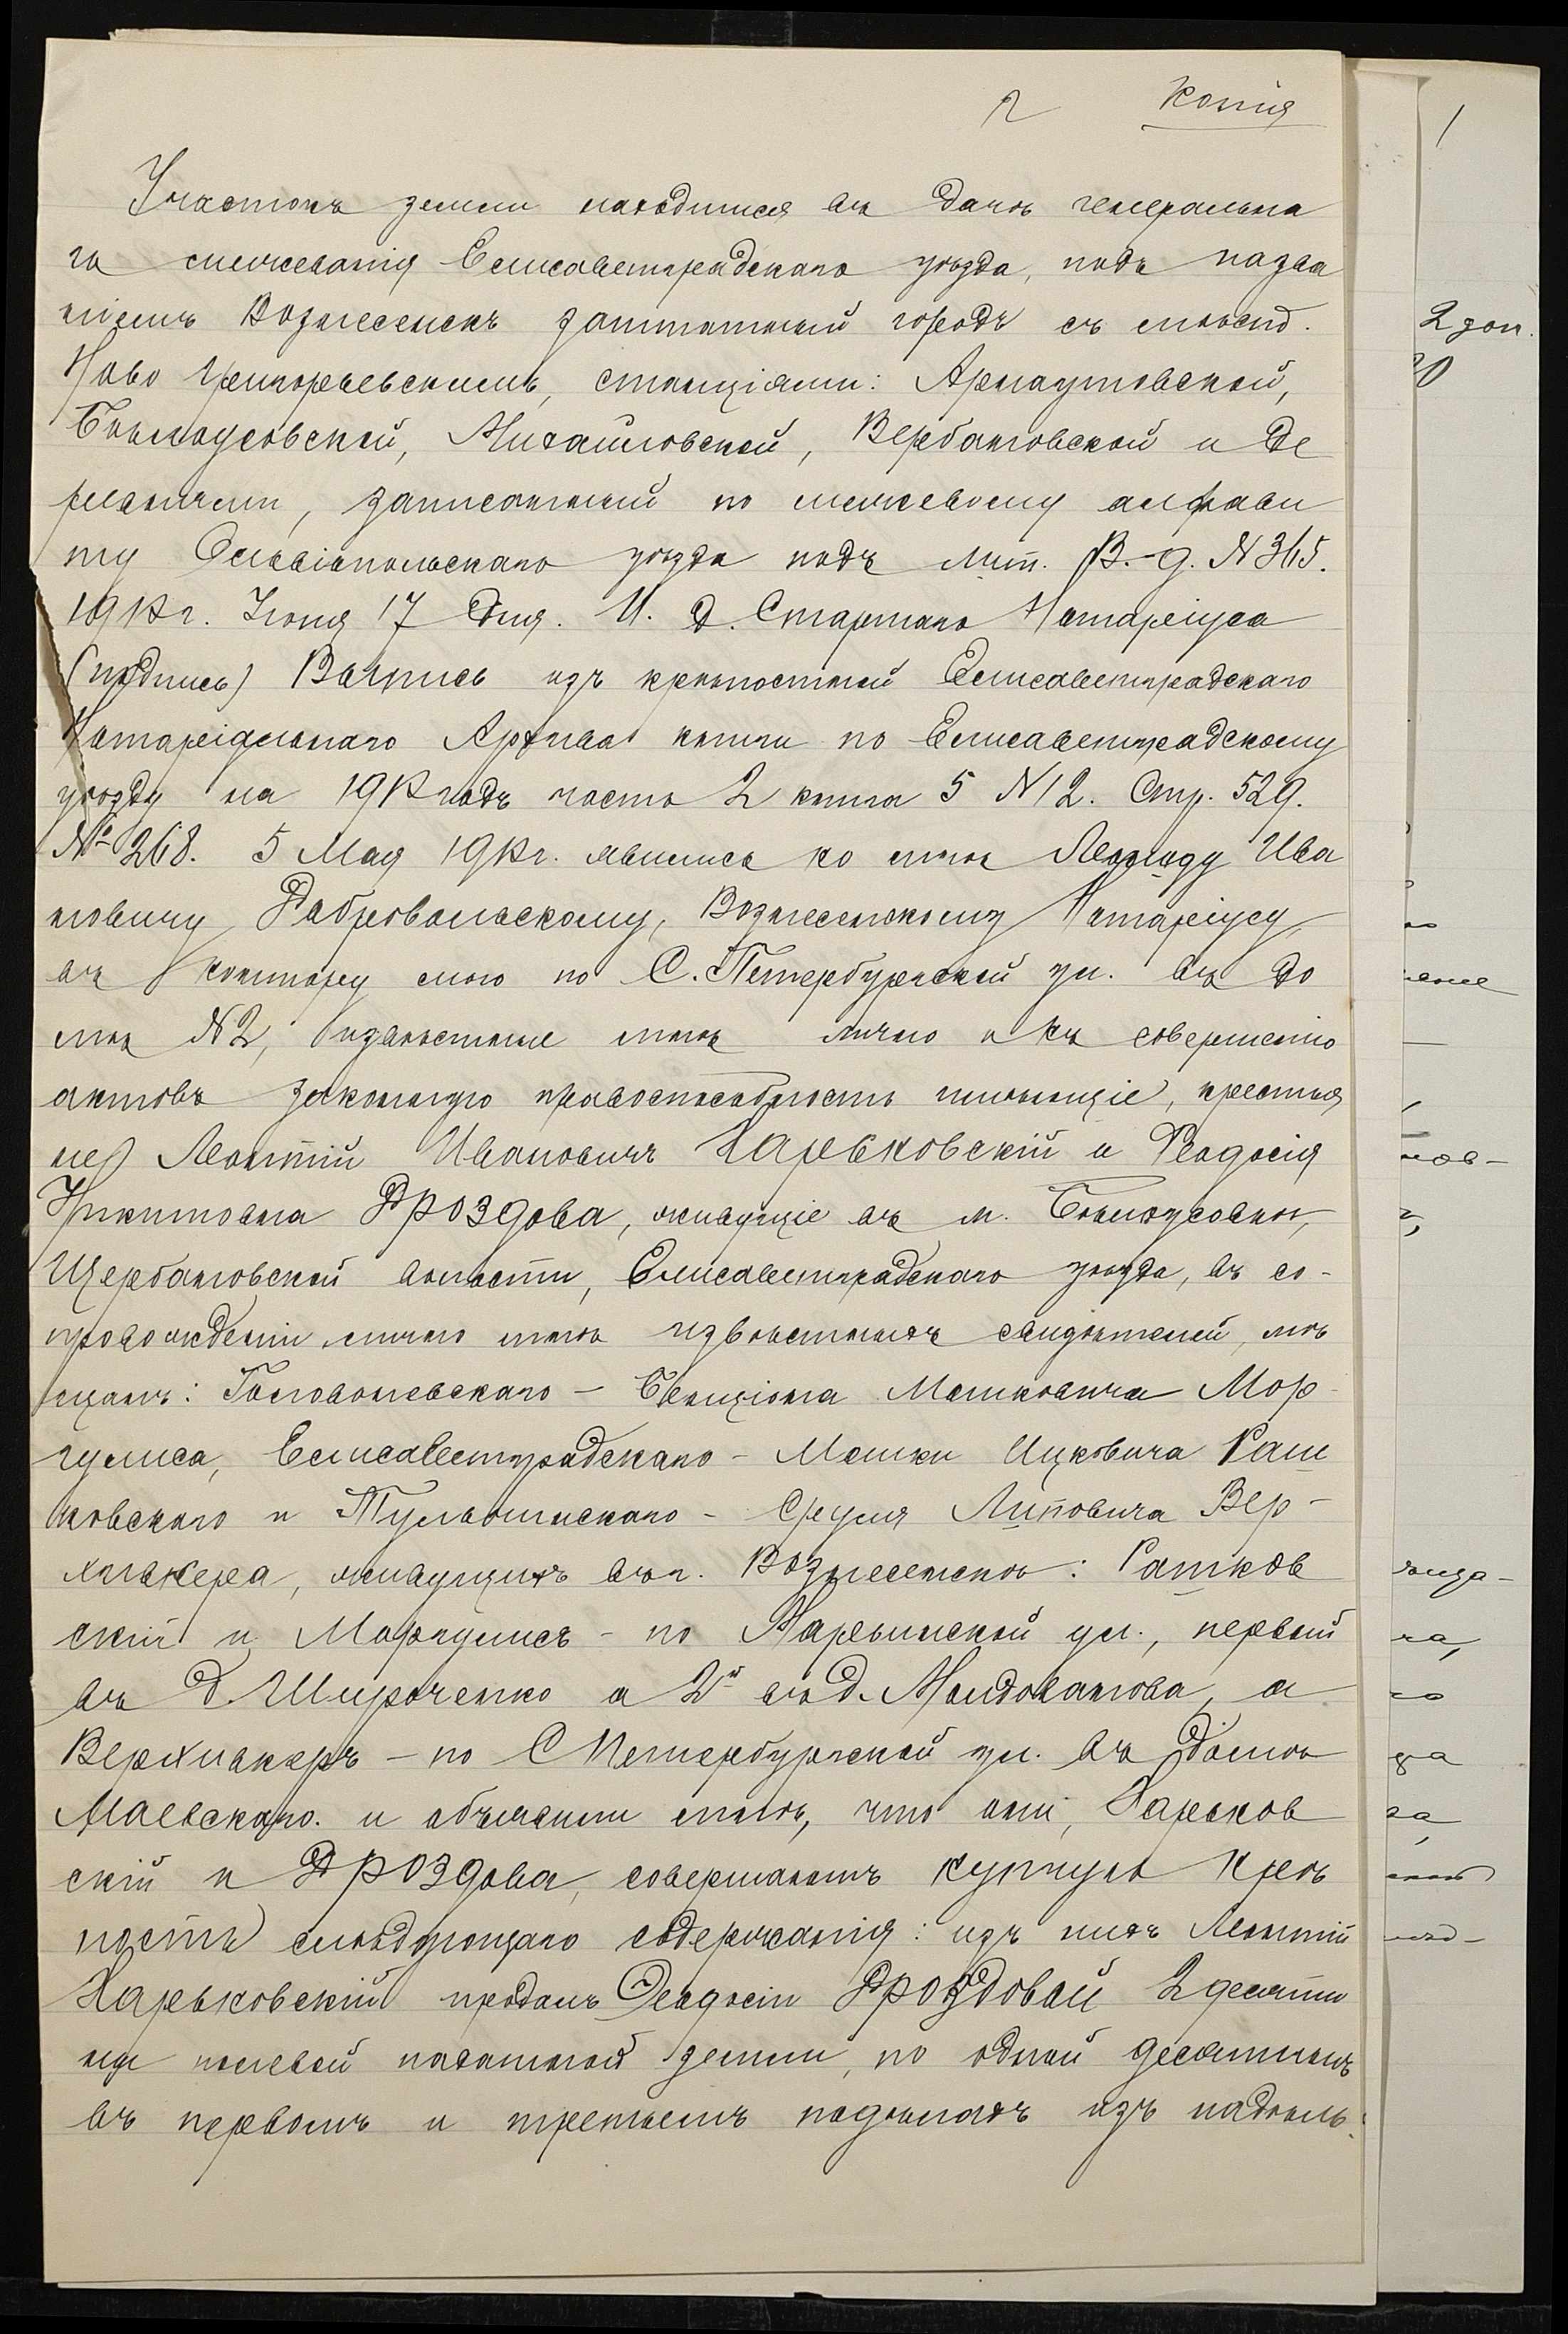 2 Копія
Участокъ земли находится въ дачѣ генерально
го межеванія Елисаветградскаго уѣзда, подъ назва
ніемъ Вознесенскъ заштатный городъ съ
Ново Григорьевскимъ, станціями: Арнаутовской,
Бѣлоусовской, Михайловской, Вербановской и де
ревнями, записанный по межевому алфави
ту Ольвіопольскаго уѣзда подъ лит. В.-д. N 365.
1912 г. Іюня 17 дня. И. д. Старшаго Нотаріуса
(подпись) Выпись изъ крѣпостной Елисаветградскаго
Нотаріальнаго Архива книги по Елисаветградскому
уѣзду на 1912 годъ часть 2 книга 5 N 12. Стр. 529.
№ 268. 5 Мая 1912 г. явились ко мнѣ Ива
новичу Добровольскому, Вознесенскому Нотаріусу,
въ контору мою по С. Петербургской ул. въ до
мѣ N 2, извѣстные мнѣ лично и къ совершенію
актовъ законную правоспособность имѣющіе, крестья
не Леонтій Ивановичъ Харьковскій и Феодосія
Никитовна Дроздова, живущіе въ м. Бѣлоусовкѣ,
Щербановской волости, Елисаветградскаго уѣзда, въ со-
провожденіи лично мнѣ извѣстныхъ свидѣтелей, мѣ
щанъ: Головоневскаго – Бенціона Мошковича Мор-
гулиса, Елисаветградскаго – Мошки Ицковича Раш
ковскаго и Тульчинскаго – Сруля Липовича Вер-
хивкера, живущихъ въ г. Вознесенскѣ: Рашков
скій и Моргулисъ – по Нарышкской ул., первый
въ д. Широченко а 2й въ д. Молдованова, а
Верхивкеръ – по С Петербургской ул. въ домѣ
Маевскаго. и объявили мнѣ, что они, Харьков
скій и Дроздова, совершаютъ купчую крѣ
пость слѣдующаго содержанія: изъ нихъ Леонтій
Харьковскій продалъ Феодосіи Дроздовой 2 десяти
ны полевой пахатной земли, по одной десятинѣ
въ первомъ и третьемъ подѣлахъ изъ надѣль-
1
2 доп.